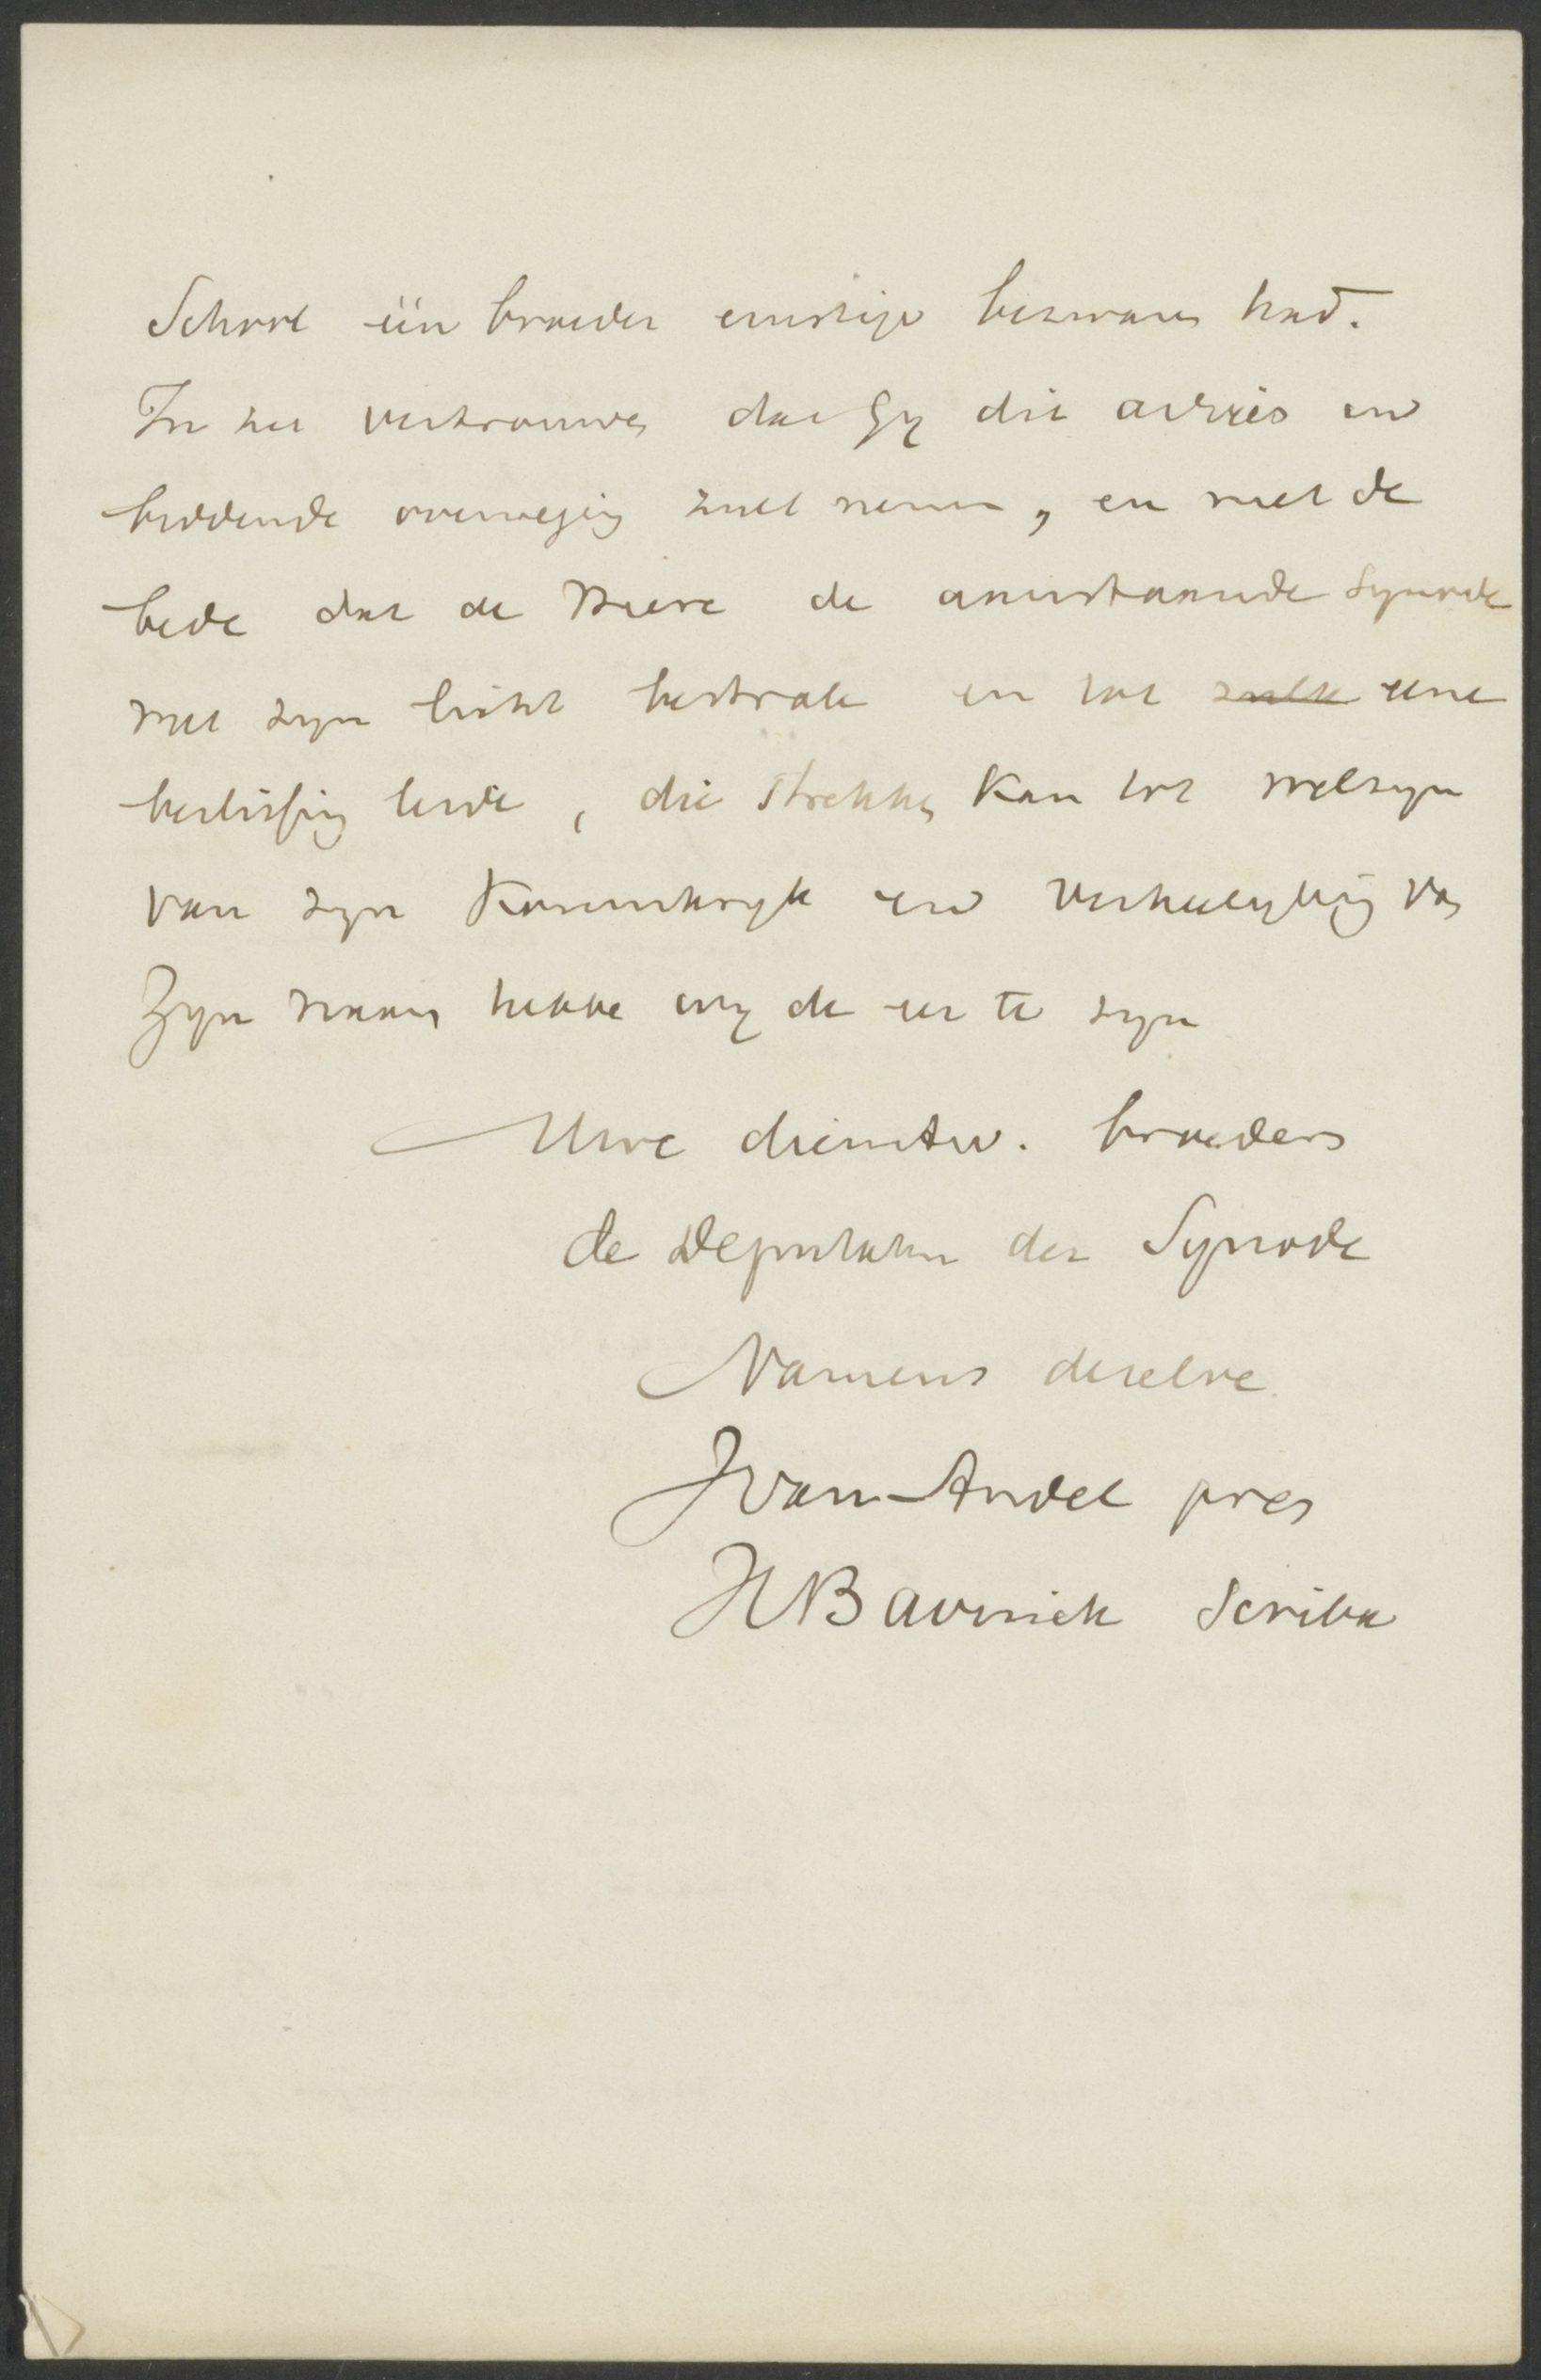 School één broeder ernstige bezwaren had.
In het vertrouwen dat Gij dit advies in
biddende overweging zult nemen, en met de
bede dat de Heere de aanstaande Synode
met zijn licht bestrale en tot zulk eene
beslissing leide, die strekken kan tot welzijn
van zijn Koninkrijk en verheerlijking van
Zijn naam hebben wij de eer te zijn
Uwe dienstw. broeders
de Deputaten der Synode
Namens dezelve
J van Andel pres
H Bavinck Scriba